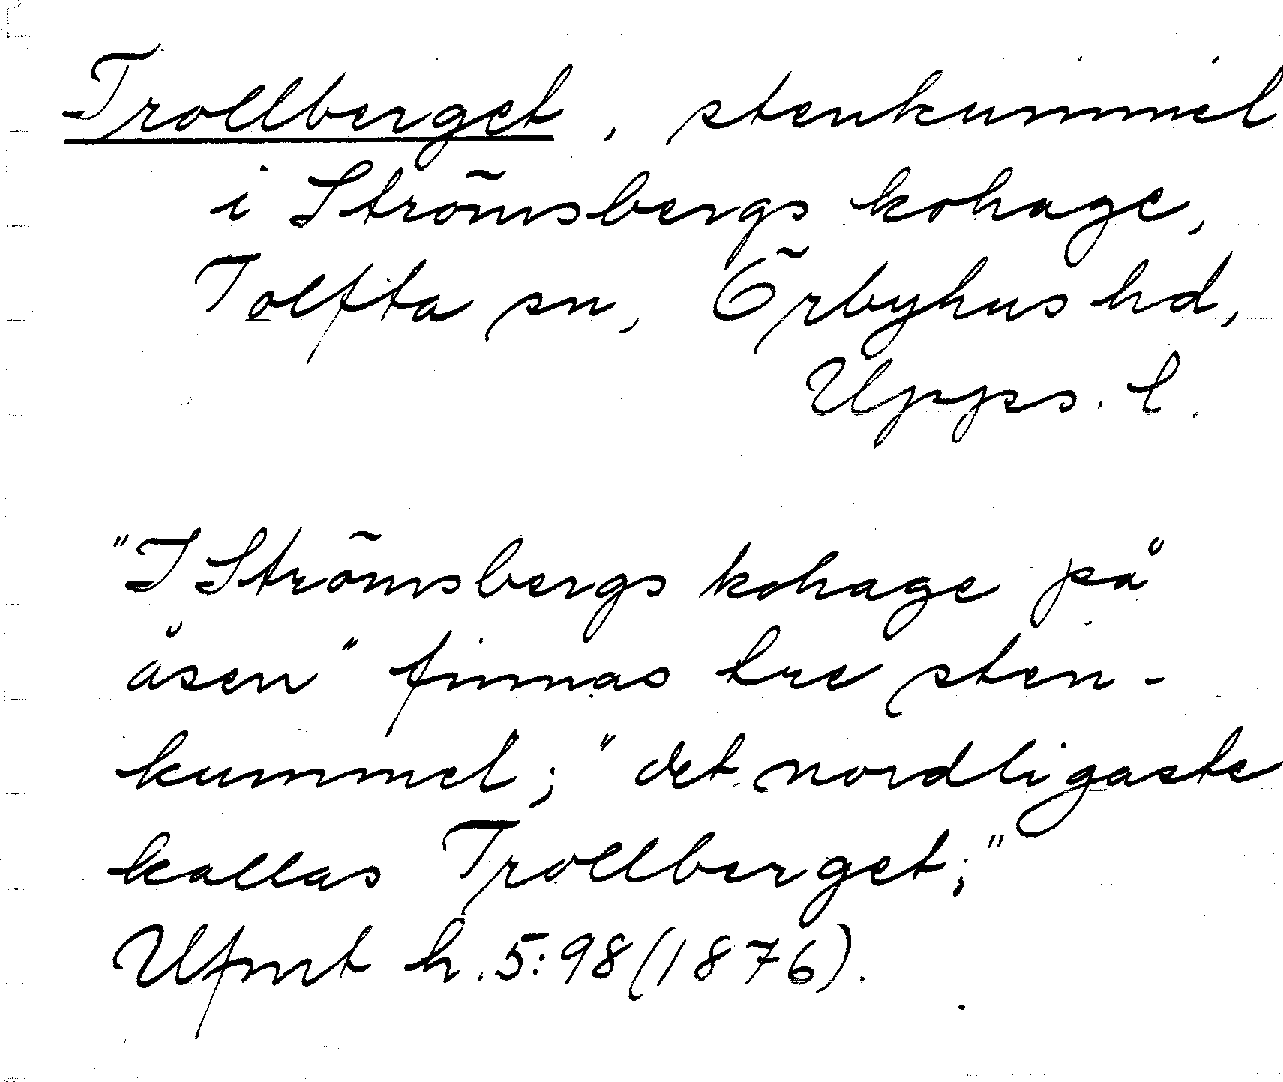 Trollberget, stenkummel
i Strömsbergs kohage,
Tolfta sn, Örbyhus hd,
Upps. l.
"I Strömsbergs kohage på
åsen" finnas tre sten-
kummel; "det nordligaste
kallas Trollberget;"
Ufmt h. 5:98 (1876).